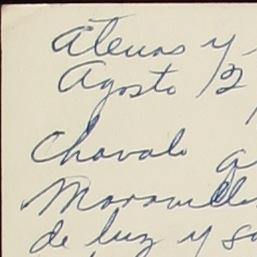 Atenas y
Agosto 12
Chavalo
Maravill
de luz y